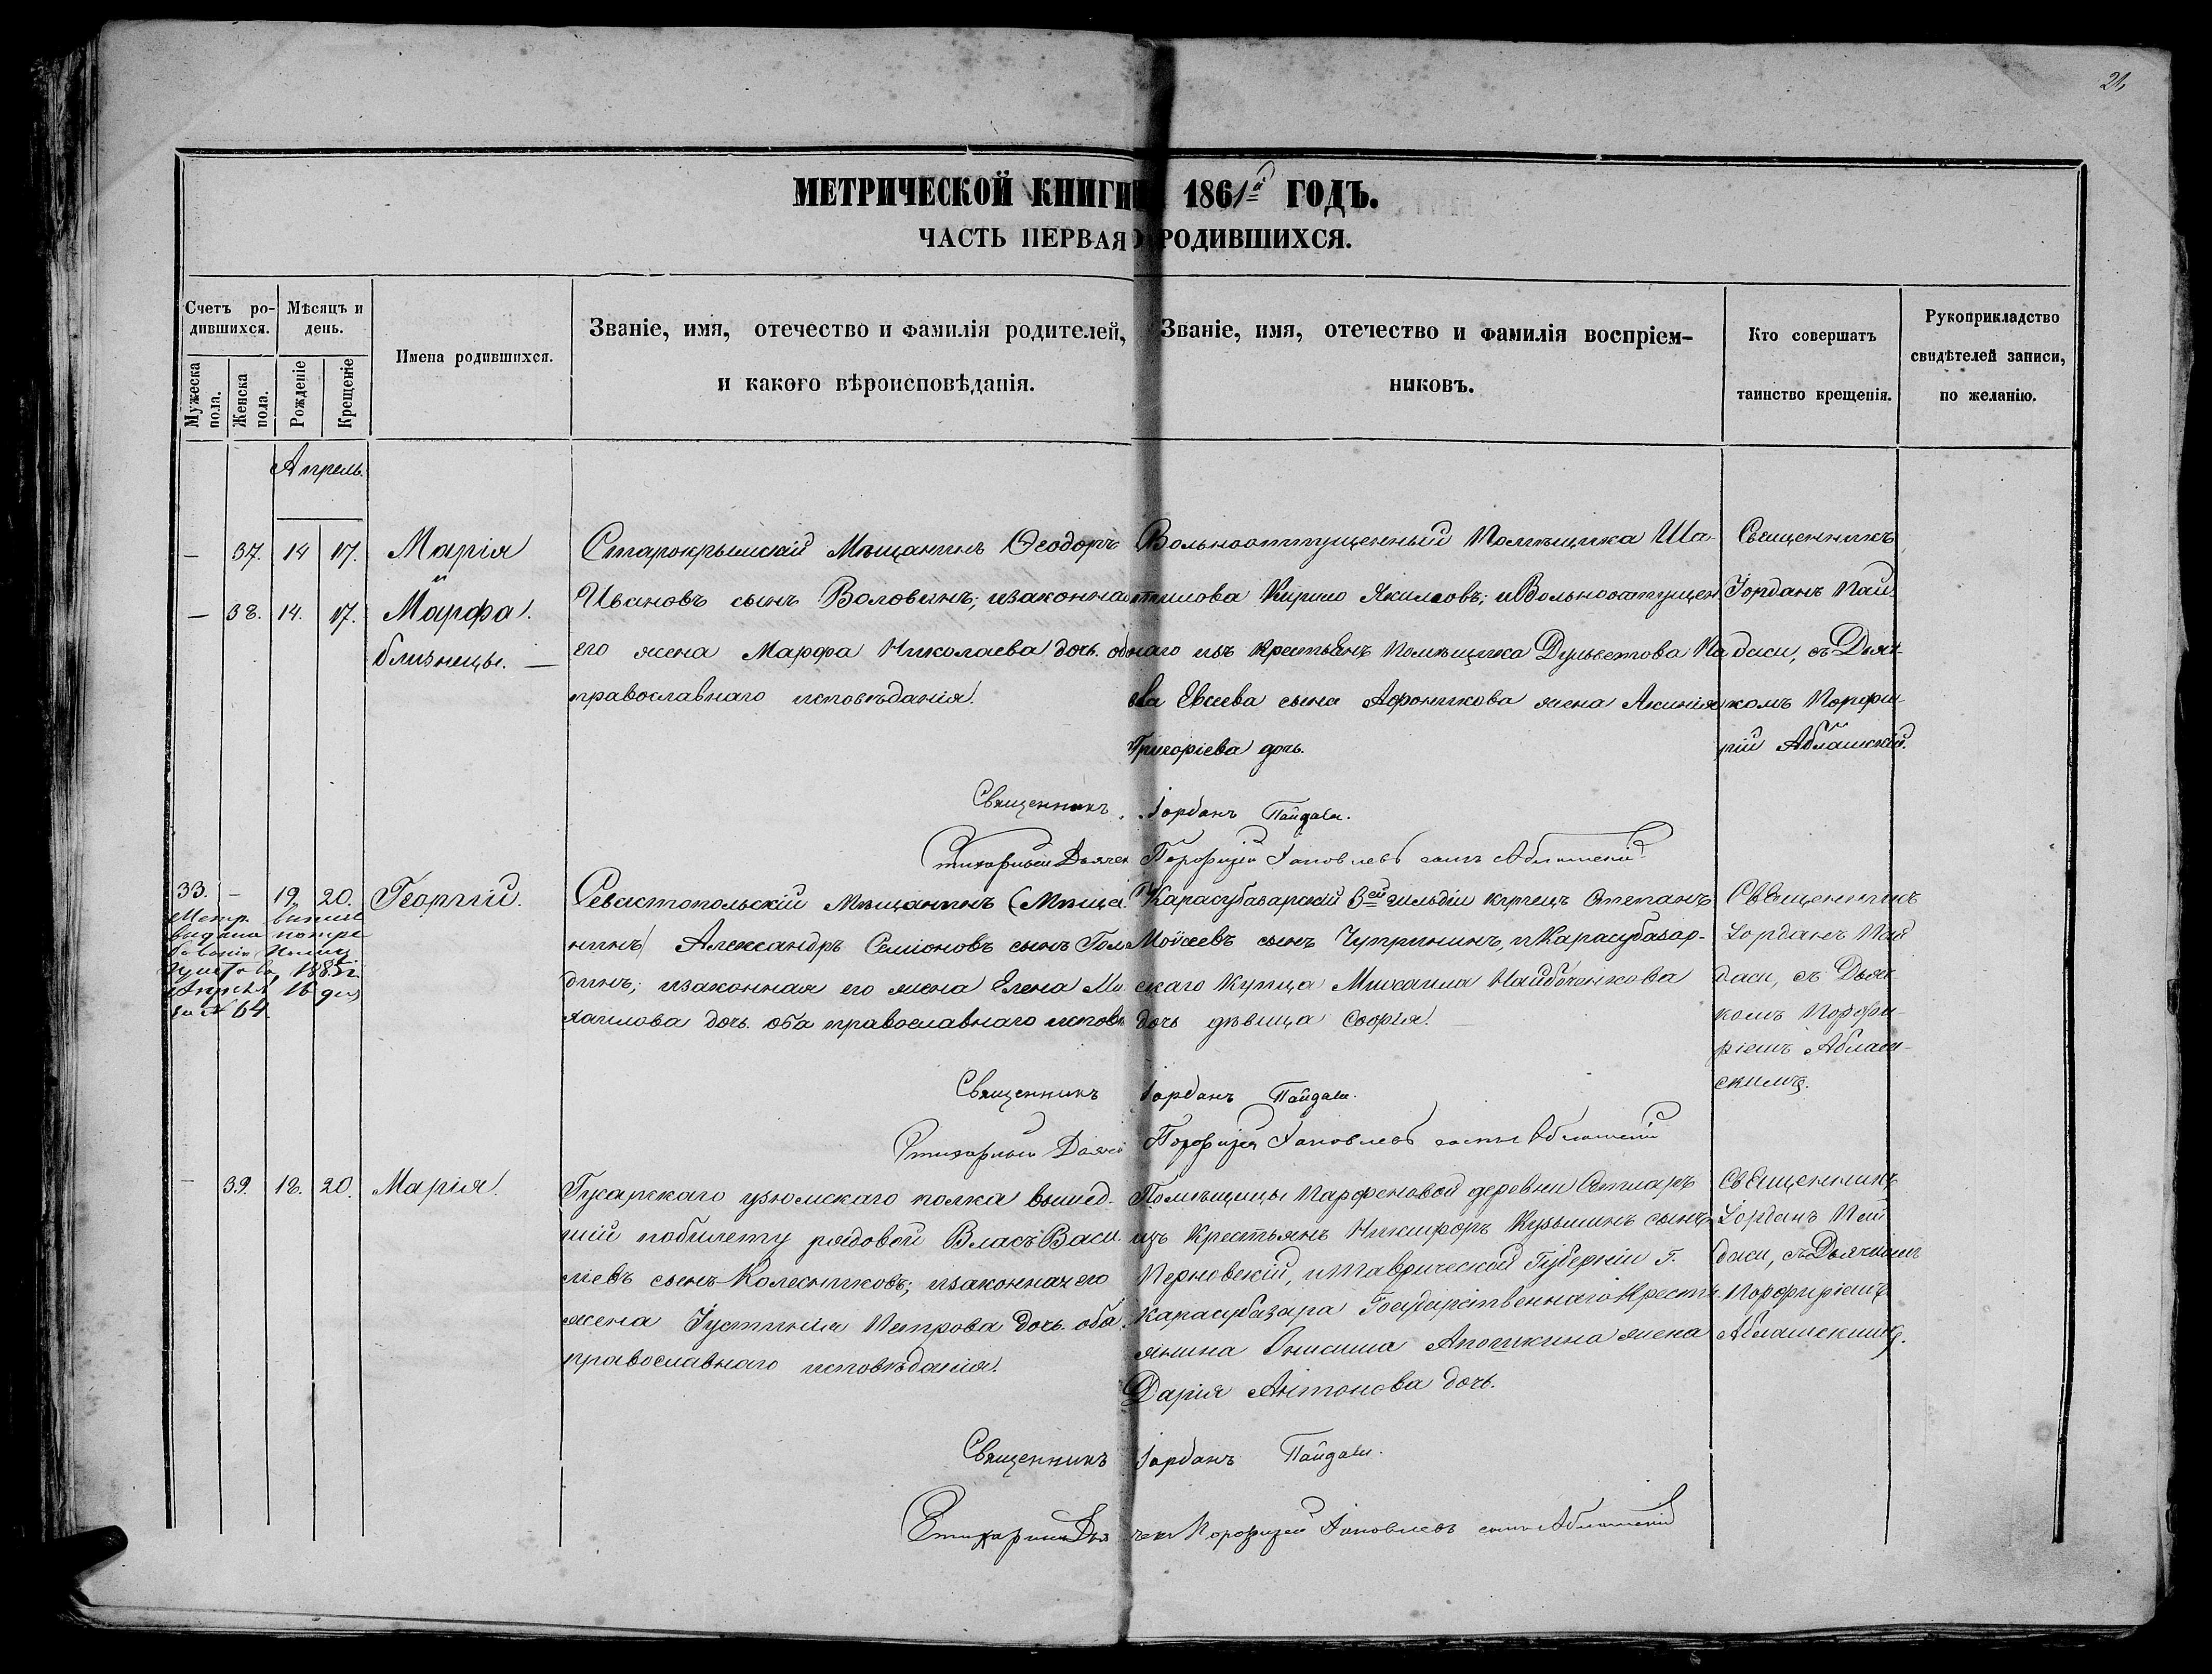 21
МЕТРИЧЕСКОЙ КНИГИ 1861й ГОДЪ.
ЧАСТЬ ПЕРВАЯ О РОДИВШИХСЯ.
Счетъ ро-
дившихся.
Мужеска пола.
Женска пола.
Мѣсяцъ и
день.
Рожденіе
Крещеніе
Имена родившихся.
Званіе, имя, отечество и фамилія родителей,
и какого вѣроисповѣданія.
Званіе, имя, отечество и фамилія воспріем-
никовъ.
Кто совершатъ
таинство крещенія.
Рукоприкладство
свидѣтелей записи,
по желанію.
Апрель.
— 37. 14 17. Марія
и
— 38. 14. 17. Марфа.
близнецы. —
Старокрымскій Мѣщанинъ Ѳеодоръ
Ивановъ сынъ Воловинъ; изаконная
его жена Марфа Николаева дочь. оба
православнаго исповѣданія.
Вольноотпущенный Помѣщика Ша-
тилова Кирило Якимовъ; иВольноотпущен
наго изъ крестьянъ Помѣщика
Евсеева сына Афоничкова жена Акинія
Григоріева дочь.
Священникъ
Іорданъ Пай
даси, съ Дьяч-
комъ Порфи-
рій Аблашскій.
Священникъ Іорданъ Пайдаси.
Стихарный Дьячек Порфирій Іаковлевъ сынъ Аблашскій
33. — 19. 20. Георгій.
Метр.
выдана потре
бованію
1885г.
Апреля 16 дня
за № 64.
Севастопольскій Мѣщанинъ (Мѣща
нинъ) Александръ Семіоновъ сынъ Гол
динъ; изаконная его жена Елена Ми
хаилова дочь. оба православнаго испов
Карасубазарскій 3ей гильдіи купецъ Степанъ
Мойсеевъ сынъ Чупрининъ, иКарасубазар-
скаго Купца Михаила Найбоченкова
дочь дѣвица Софія. —
Священникъ
Іорданъ Пай
даси, съ Дьяч
комъ Порфи-
ріемъ Аблаш-
скимъ.
Священникъ Іорданъ Пайдаси.
Стихарный Дьячек Порфирій Іаковлевъ сынъ Аблашскій
— 39. 18. 20. Марія.
Гусарскаго узюмскаго полка вышед-
шій побилету рядовой Власъ Васи
ліевъ сынъ Колесниковъ; изаконная его
жена Іустинія Петрова дочь. оба
православнаго исповѣданія.
Помѣщицы Парфеновой деревни
изъ Крестьянъ Никифоръ Кузьминъ сынъ
Перновскій, иТаврической Губерніи г.
Карасубазара Государственнаго Кресть
янина Онисима Апошкина жена
Дарія Антонова дочь.
Священникъ
Іорданъ Пай
даси, съ Дьячкомъ
Порфиріемъ
Аблашскимъ.
Священникъ Іорданъ Пайдаси.
Стихарный Дьячек Порфирій Іаковлевъ сынъ Аблашскій